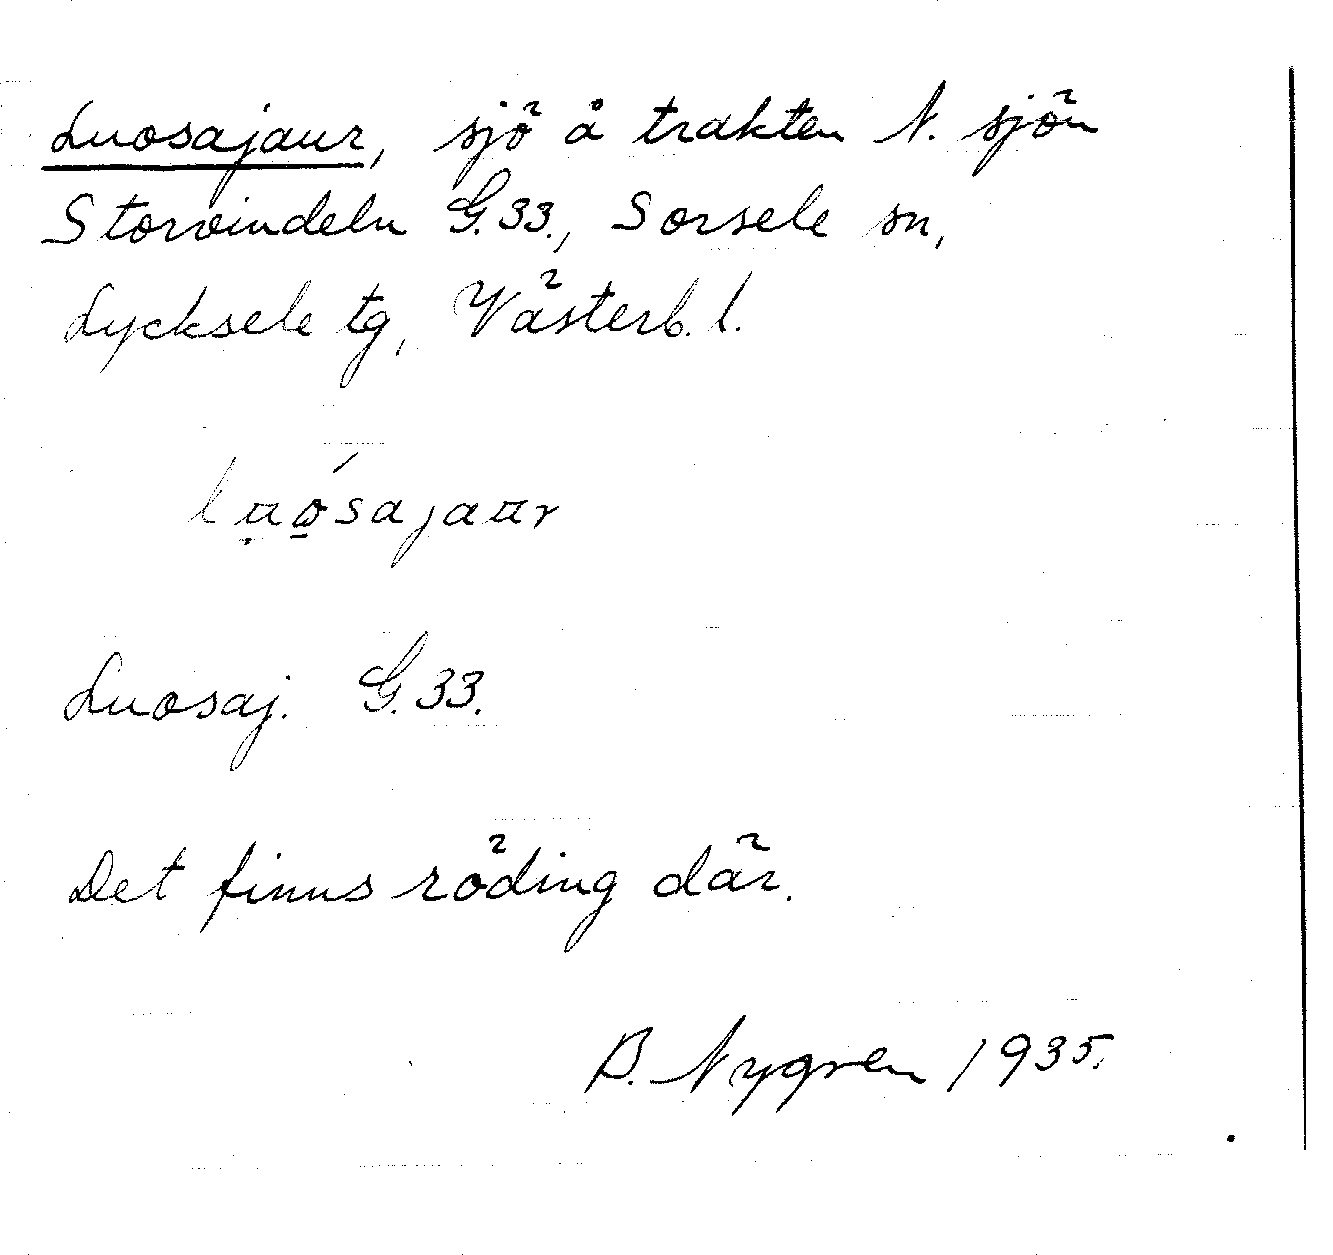 Luosajaur, sjö å trakten N. sjön
Storvindeln G.33., Sorsele sn,
Lycksele tg, Västerb. l.
luo̱´sajaur
Luosaj. G.33.
Det finns röding där.
B. Nygren 1935.